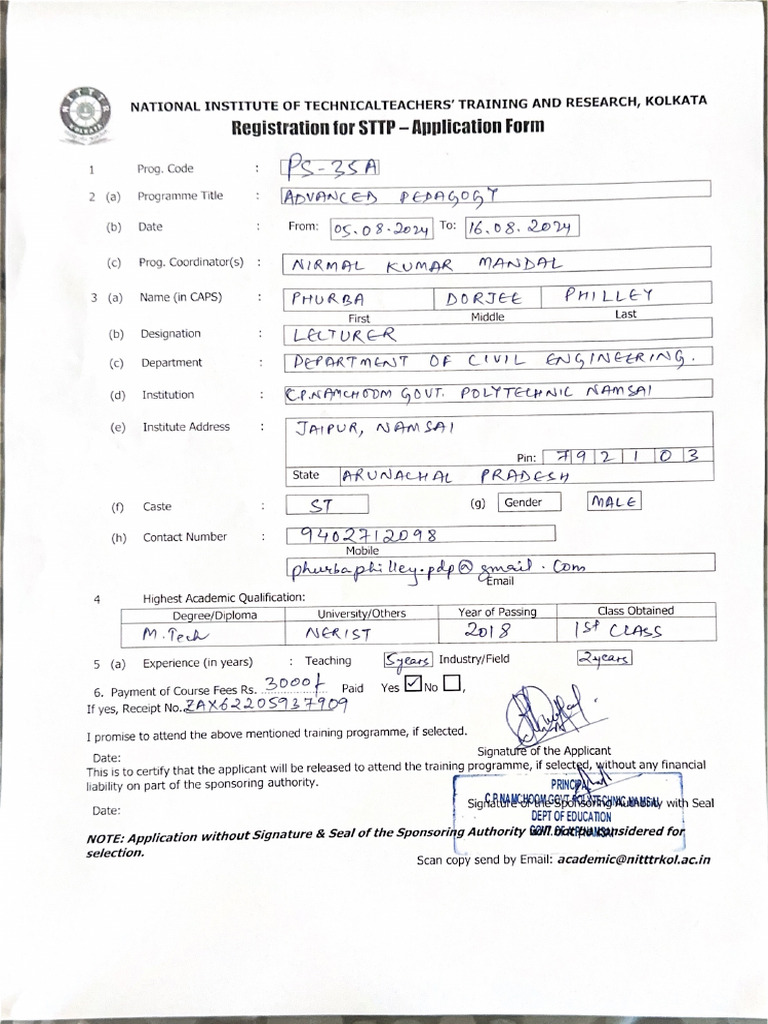 NITTTR
KOLKATA
NATIONAL INSTITUTE OF TECHNICALTEACHERS' TRAINING AND RESEARCH, KOLKATA
Registration for STTP – Application Form
1 Prog. Code : PS-35A
2 (a) Programme Title : ADVANCED PEDAGOGY
(b) Date : From: 05.08.2024 To: 16.08.2024
(c) Prog. Coordinator(s) : NIRMAL KUMAR MANDAL
3 (a) Name (in CAPS) : PHURBA DORJEE PHILLEY
First Middle Last
(b) Designation : LECTURER
(c) Department : DEPARTMENT OF CIVIL ENGINEERING.
(d) Institution : C.P.NAMCHOOM GOVT. POLYTECHNIC NAMSAI
(e) Institute Address : JAIPUR, NAMSAI
Pin: 792103
State ARUNACHAL PRADESH
(f) Caste : ST (g) Gender MALE
(h) Contact Number : 9402712098
Mobile
phurbaphilley.pdp@gmail.com
Email
4 Highest Academic Qualification:
Degree/Diploma University/Others Year of Passing Class Obtained
M.Tech NERIST 2018 1st CLASS
5 (a) Experience (in years) : Teaching 5years Industry/Field 2years
6. Payment of Course Fees Rs. 3000/- Paid Yes ☑ No ☐,
If yes, Receipt No. ZAX62205937909
I promise to attend the above mentioned training programme, if selected.
Signature of the Applicant
Date:
This is to certify that the applicant will be released to attend the training programme, if selected, without any financial
liability on part of the sponsoring authority.
PRINCIPAL
C.P.NAMCHOOM GOVT POLYTECHNIC NAMSAI
Date: Signature of the Sponsoring Authority with Seal
DEPT OF EDUCATION
NOTE: Application without Signature & Seal of the Sponsoring Authority will not be considered for
selection.
Scan copy send by Email: academic@nitttrkol.ac.in